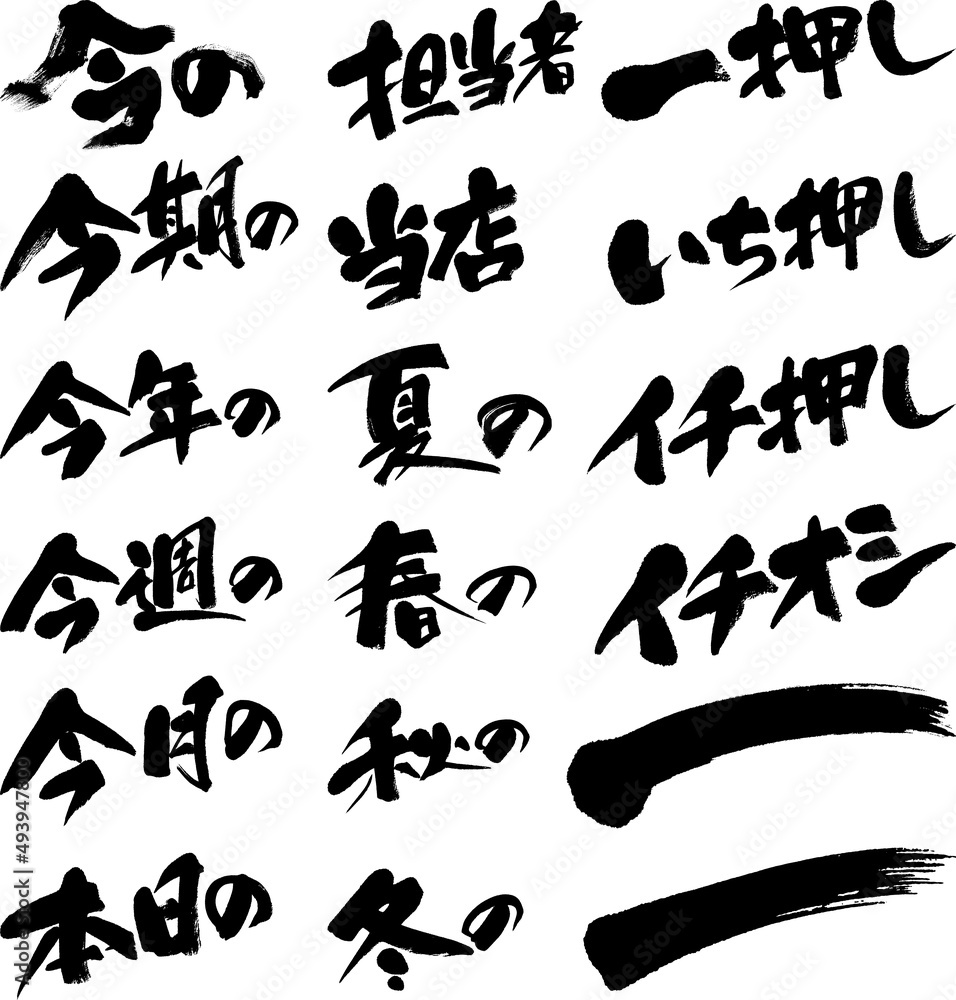 今の 担当者 一押し
今期の 当店 いち押し
今年の 夏の イチ押し
今週の 春の イチオシ
今月の 秋の
本日の 冬の
Adobe Stock | #493947800